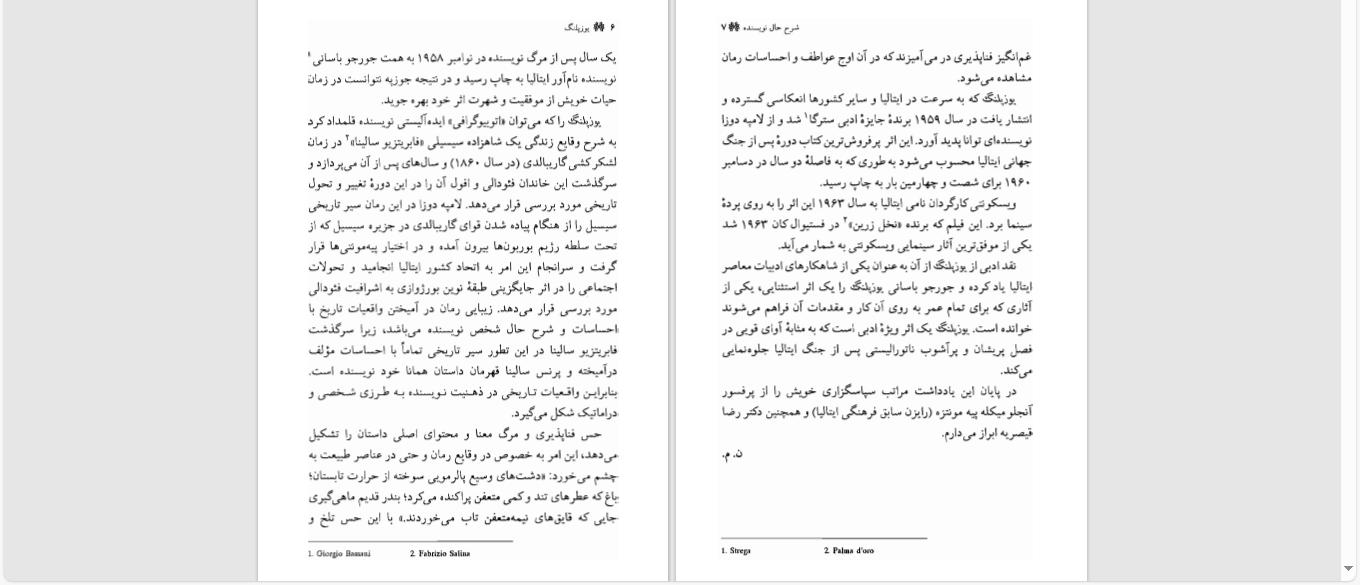 ۶ یوزپلنگ
یک سال پس از مرگ نویسنده در نوامبر ۱۹۵۸ به همت جورجو باسانی۱
نویسنده نام‌آور ایتالیا به چاپ رسید و در نتیجه جوزپه نتوانست در زمان
حیات خویش از موفقیت و شهرت اثر خود بهره جوید.
یوزپلنگ را که می‌توان «اتوبیوگرافی» ایده‌آلیستی نویسنده قلمداد کرد
به شرح وقایع زندگی یک شاهزاده سیسیلی «فابریتزیو سالینا»۲ در زمان
لشکرکشی گاریبالدی (در سال ۱۸۶۰) و سال‌های پس از آن می‌پردازد و
سرگذشت این خاندان فئودالی و افول آن را در این دورهٔ تغییر و تحول
تاریخی مورد بررسی قرار می‌دهد. لامپه دوزا در این رمان سیر تاریخی
سیسیل را از هنگام پیاده شدن قوای گاریبالدی در جزیره سیسیل که از
تحت سلطه رژیم بوربون‌ها بیرون آمده و در اختیار پیه‌مونتی‌ها قرار
گرفت و سرانجام این امر به اتحاد کشور ایتالیا انجامید و تحولات
اجتماعی را در اثر جایگزینی طبقهٔ نوین بورژوازی به اشرافیت فئودالی
مورد بررسی قرار می‌دهد. زیبایی رمان در آمیختن واقعیات تاریخ با
احساسات و شرح حال شخص نویسنده می‌باشد، زیرا سرگذشت
فابریتزیو سالینا در این تطور سیر تاریخی تماماً با احساسات مؤلف
درآمیخته و پرنس سالینا قهرمان داستان همانا خود نویسنده است.
بنابراین واقعیات تاریخی در ذهنیت نویسنده به طرزی شخصی و
دراماتیک شکل می‌گیرد.
حس فناپذیری و مرگ معنا و محتوای اصلی داستان را تشکیل
می‌دهد، این امر به خصوص در وقایع رمان و حتی در عناصر طبیعت به
چشم می‌خورد: «دشت‌های وسیع پالرمویی سوخته از حرارت تابستان؛
باغ که عطرهای تند و کمی متعفن پراکنده می‌کرد؛ بندر قدیم ماهی‌گیری
جایی که قایق‌های نیمه‌متعفن تاب می‌خوردند.» با این حس تلخ و
1. Giorgio Bassani 2. Fabrizio Salina
شرح حال نویسنده ۷
غم‌انگیز فناپذیری در می‌آمیزند که در آن اوج عواطف و احساسات رمان
مشاهده می‌شود.
یوزپلنگ که به سرعت در ایتالیا و سایر کشورها انعکاسی گسترده و
انتشار یافت در سال ۱۹۵۹ برندهٔ جایزهٔ ادبی سترگا۱ شد و از لامپه دوزا
نویسنده‌ای توانا پدید آورد. این اثر پرفروش‌ترین کتاب دورهٔ پس از جنگ
جهانی ایتالیا محسوب می‌شود به طوری که به فاصلهٔ دو سال در دسامبر
۱۹۶۰ برای شصت و چهارمین بار به چاپ رسید.
ویسکونتی کارگردان نامی ایتالیا به سال ۱۹۶۳ این اثر را به روی پردهٔ
سینما برد. این فیلم که برنده «نخل زرین»۲ در فستیوال کان ۱۹۶۳ شد
یکی از موفق‌ترین آثار سینمایی ویسکونتی به شمار می‌آید.
نقد ادبی از یوزپلنگ از آن به عنوان یکی از شاهکارهای ادبیات معاصر
ایتالیا یاد کرده و جورجو باسانی یوزپلنگ را یک اثر استثنایی، یکی از
آثاری که برای تمام عمر به روی آن کار و مقدمات آن فراهم می‌شوند
خوانده است. یوزپلنگ یک اثر ویژهٔ ادبی است که به مثابهٔ آوای قویی در
فصل پریشان و پرآشوب ناتورالیستی پس از جنگ ایتالیا جلوه‌نمایی
می‌کند.
در پایان این یادداشت مراتب سپاسگزاری خویش را از پرفسور
آنجلو میکله پیه مونتزه (رایزن سابق فرهنگی ایتالیا) و همچنین دکتر رضا
قیصریه ابراز می‌دارم.
ن. م.
1. Strega 2. Palma d'oro